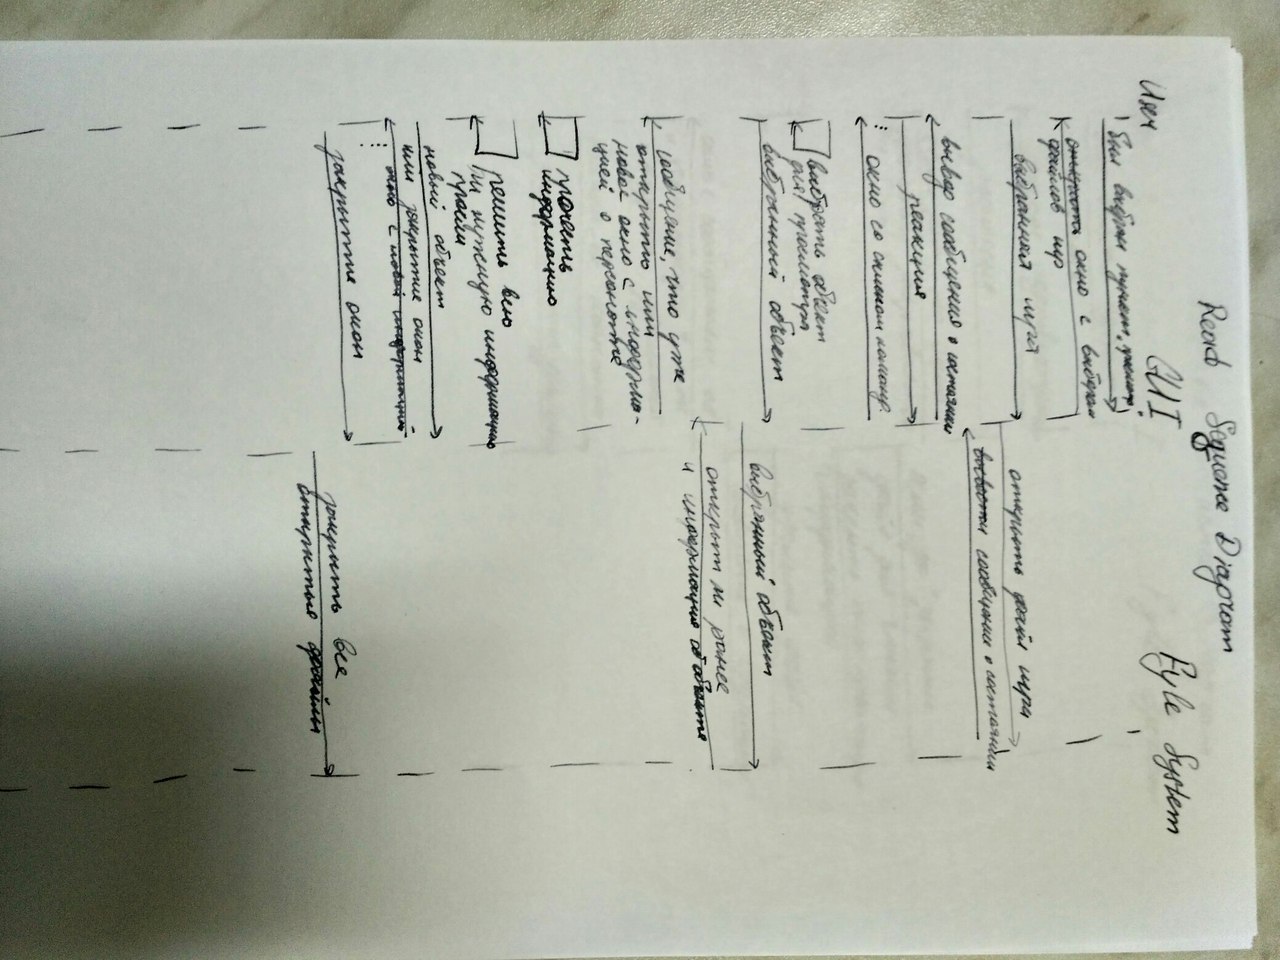 Read Sequence Diagram
User
GUI
Fyle System
был выбран пункт
окно с выбором
файлов игр
выбранная игра
открыть файл игры
сообщения о состоянии
вывод сообщения о состоянии
реакция
окно со списком команд
выбрать объект
для просмотра
выбранный объект
выбранный объект
открыт ли ранее
и информация об объекте
сообщение, что уже
открыто или
новое окно с информа-
цией о персонаже
прочесть
информацию
решить всю
ли нужную информацию
новый объект
или закрытие окон
окно с новой информацией
закрытие окон
закрыть все
открытые файлы